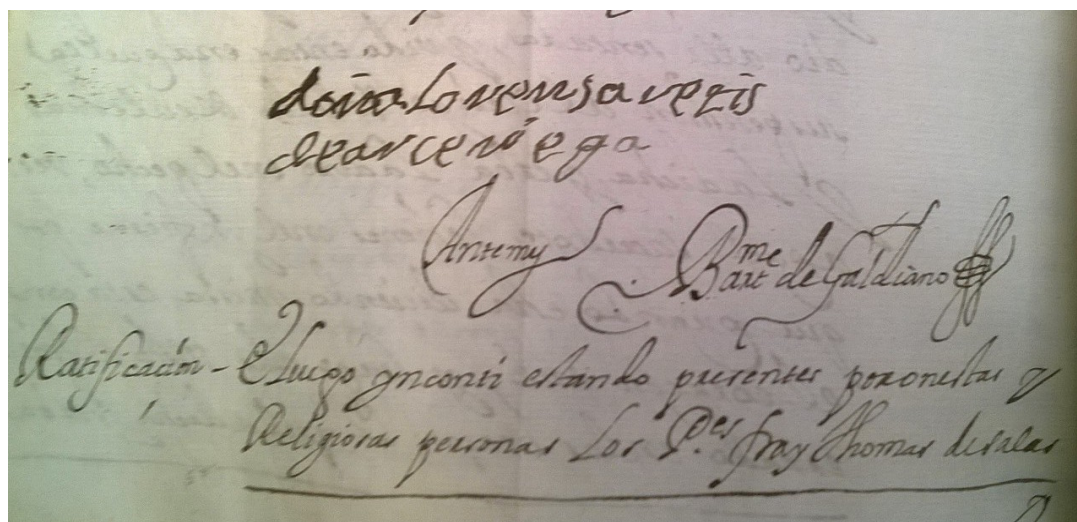 doña Lorensa regis
de arceniega
Antemy Bart.me de Galdiano
Ratificación - E luego ynconti estando presentes por onestas y
Religiosas personas los P.es fray Thomas de salas